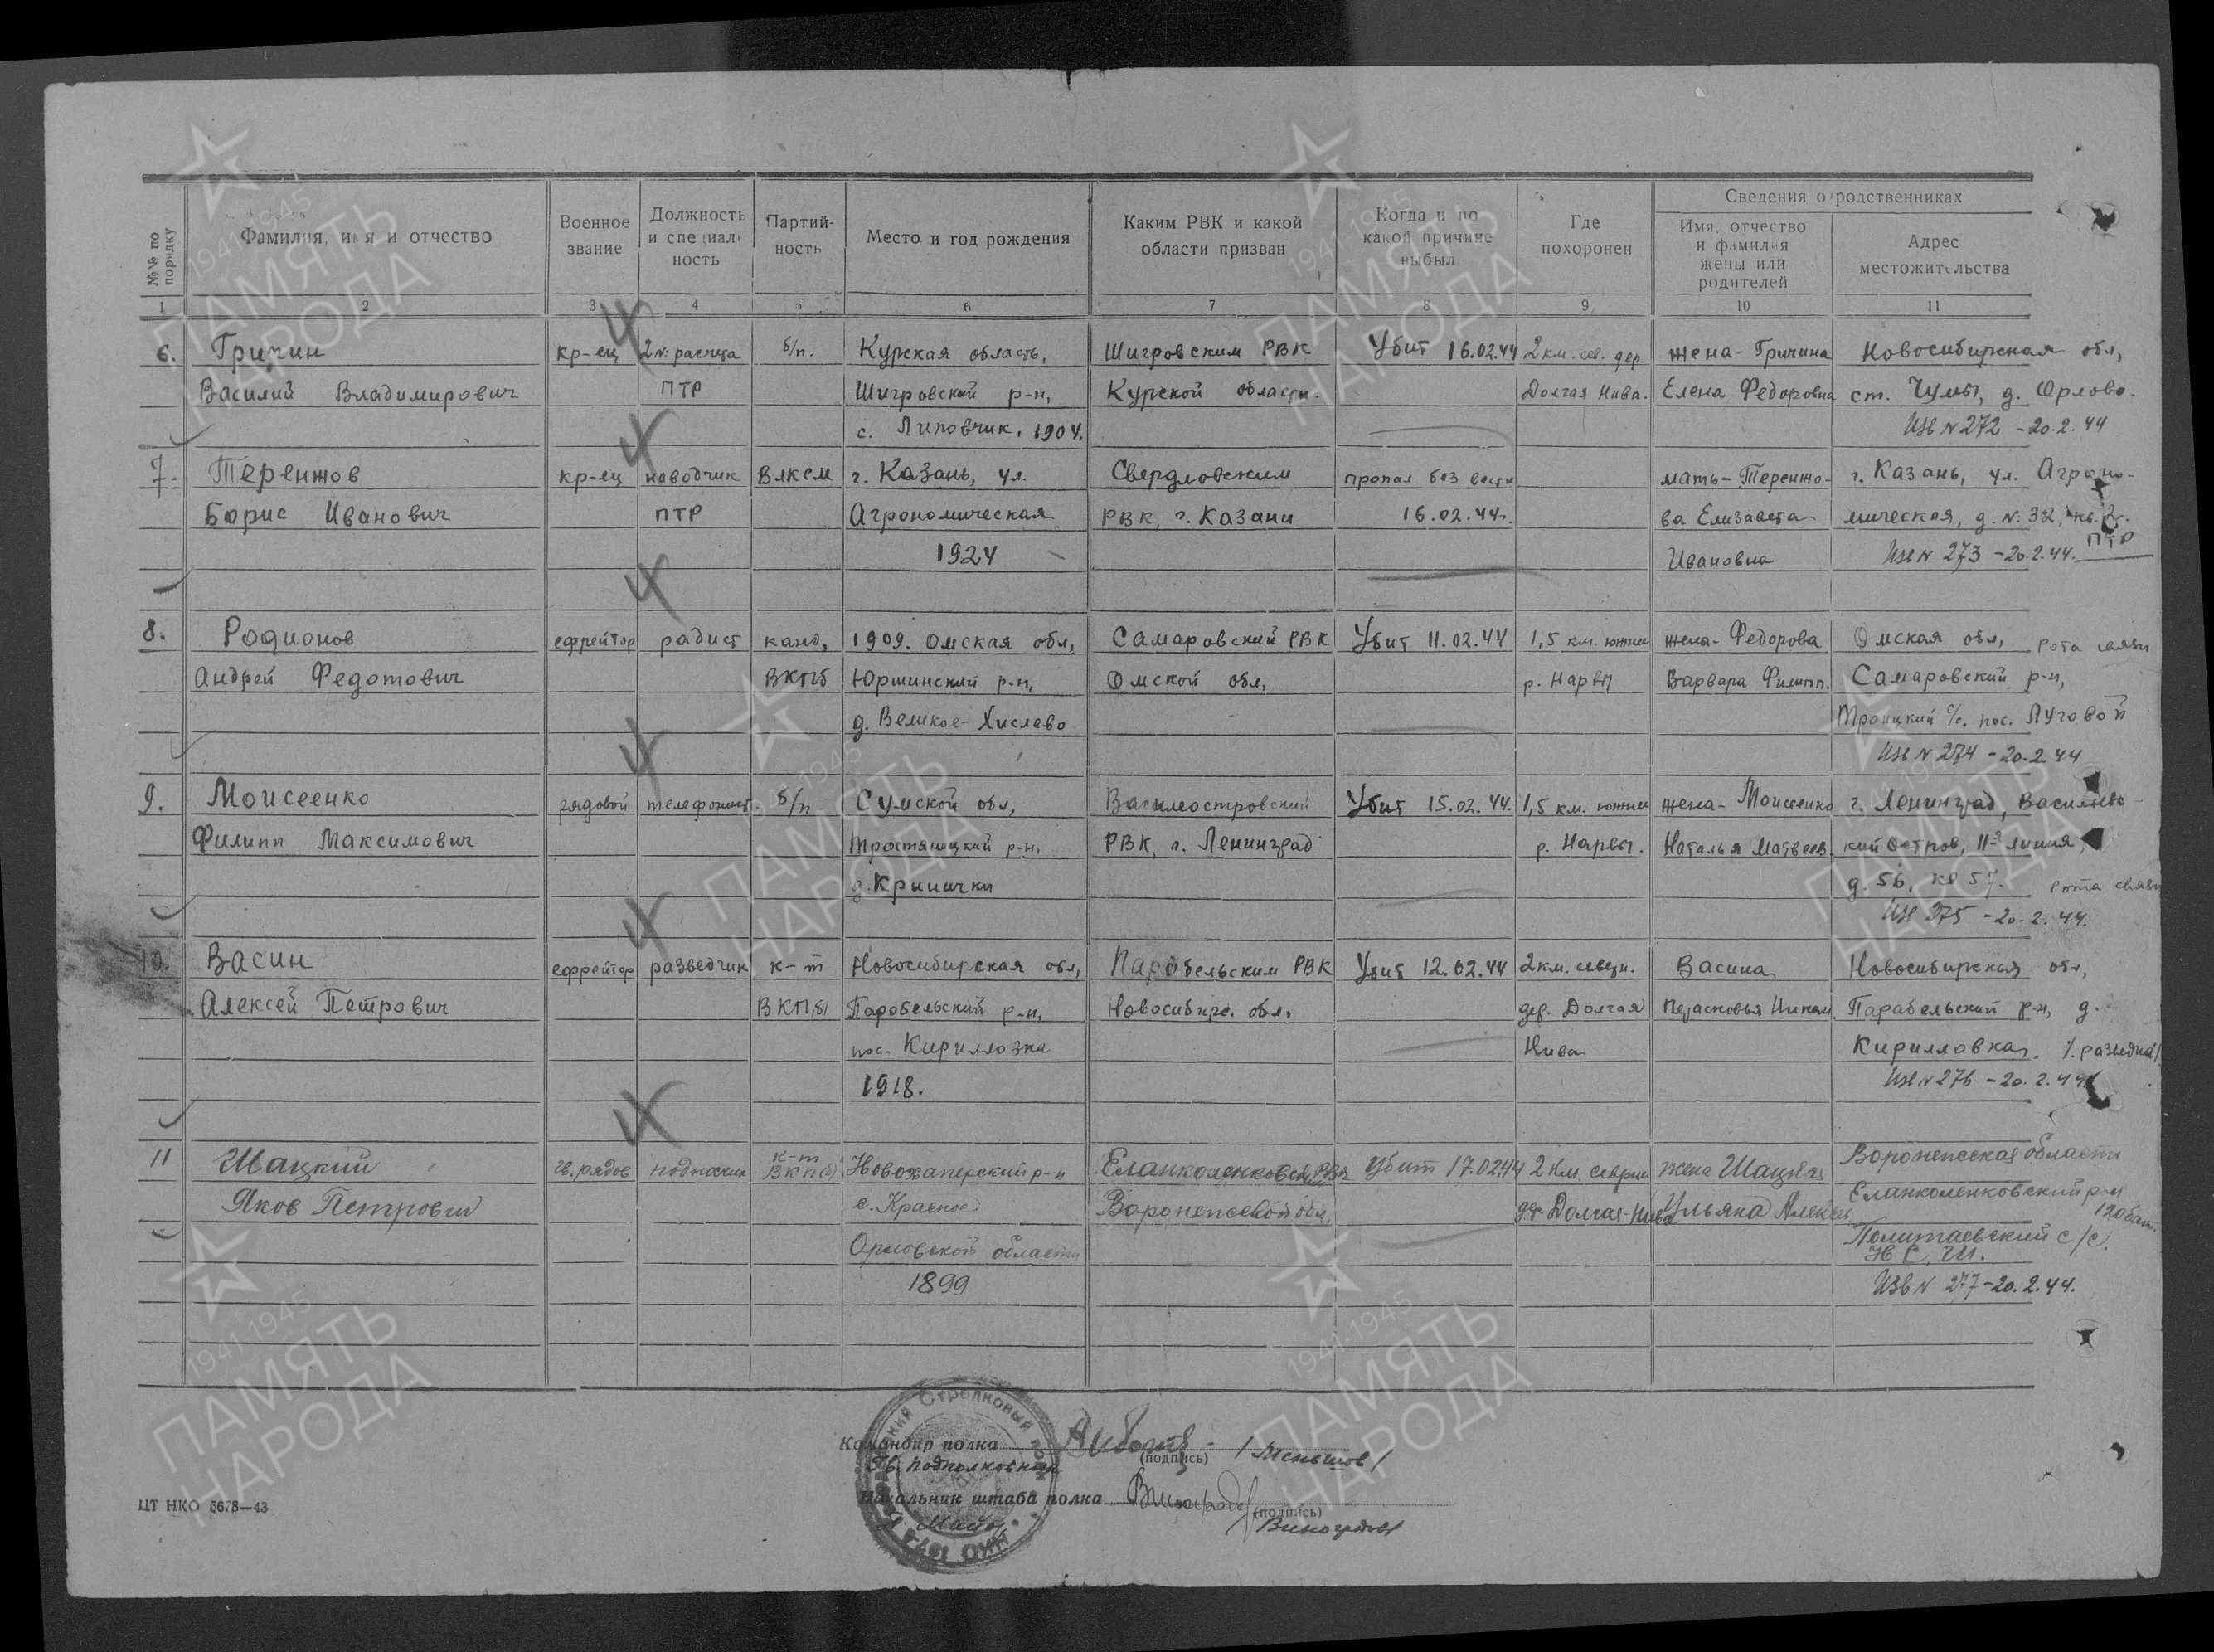 №№ по порядку
Фамилия, имя и отчество
Военное звание
Должность и специальность
Партийность
Место и год рождения
Каким РВК и какой области призван
Когда и по какой причине выбыл
Где похоронен
Сведения о родственниках
Имя, отчество и фамилия жены или родителей
Адрес местожительства
1 2 3 4 5 6 7 8 9 10 11
6. Гричин кр-ец 2 №: расчета б/п. Курская область, Шигровским РВК Убит 16.02.44 2 км. сев. дер. жена - Гричина Новосибирская обл,
Василий Владимирович ПТР Шигровский р-н, Курской области. Долгая Нива. Елена Федоровна ст. Чулы, д. Орлово.
с. Липовчик, 1904.
Изв N 272 - 20.2.44
7. Терентов кр-ец наводчик ВЛКСМ г. Казань, ул. Свердловским пропал без вести мать - Теренто- г. Казань, ул. Агроно-
Борис Иванович ПТР Агрономическая РВК, г. Казани 16.02.44г. ва Елизавета мическая, д. №: 32, кв. 2.
1924 Ивановна Изв N 273 - 20.2.44. ПТР
8. Родионов ефрейтор радист канд, 1909. Омская обл, Самаровский РВК Убит 11.02.44 1,5 км. южнее жена - Федорова Омская обл, рота связи
Андрей Федотович ВКПб Юршинский р-н, Омской обл, р. Нарвы Варвара Филипп. Самаровский р-н,
д. Великое-Хислево Троицкий с/с. пос. Луговой
Изв N 274 - 20.2.44
9. Моисеенко рядовой телефонист. б/п Сумской обл, Василеостровский Убит 15.02.44. 1,5 км. южнее жена - Моисеенко г. Ленинград, Васильевс-
Филипп Максимович Тростянецкий р-н, РВК, г. Ленинград р. Нарвы. Наталья Матвеев. кий Остров, 11-я линия,
д. Кринички д. 56, кв 57. рота связи
Изв 275 - 20.2.44.
10. Васин ефрейтор разведчик к-т Новосибирская обл, Парабельским РВК Убит 12.02.44 2 км. северн. Васина Новосибирская обл,
Алексей Петрович ВКП/б/ Паробельский р-н, Новосибирс. обл. дер. Долгая Парасковья Никол. Парабельский р-н, д.
пос. Кирилловка Нива Кирилловка.
1918. Изв N 276 - 20.2.44
11 Шацкий гв. рядов подносчик к-т ВКП(б) Новохаперский р-н Еланколенковский РВК убит 17.02.44 2 км северн жена Шацкая Воронежская области
Яков Петрович с. Красное Воронежской обл. дер. Долгая-Нива Ульяна Алексе. Еланколенковский р-н
120бат.
Орловской области Политаевский с/с.
1899 Изв N 277 - 20.2.44.
Командир полка
(подпись)
/Меньшов/
Гв. подполковник
Начальник штаба полка
(подпись)
Майор
/Виноградов/
ЦТ НКО 5678—43
Стрелковый
НКО
ПАМЯТЬ НАРОДА
1941 1945